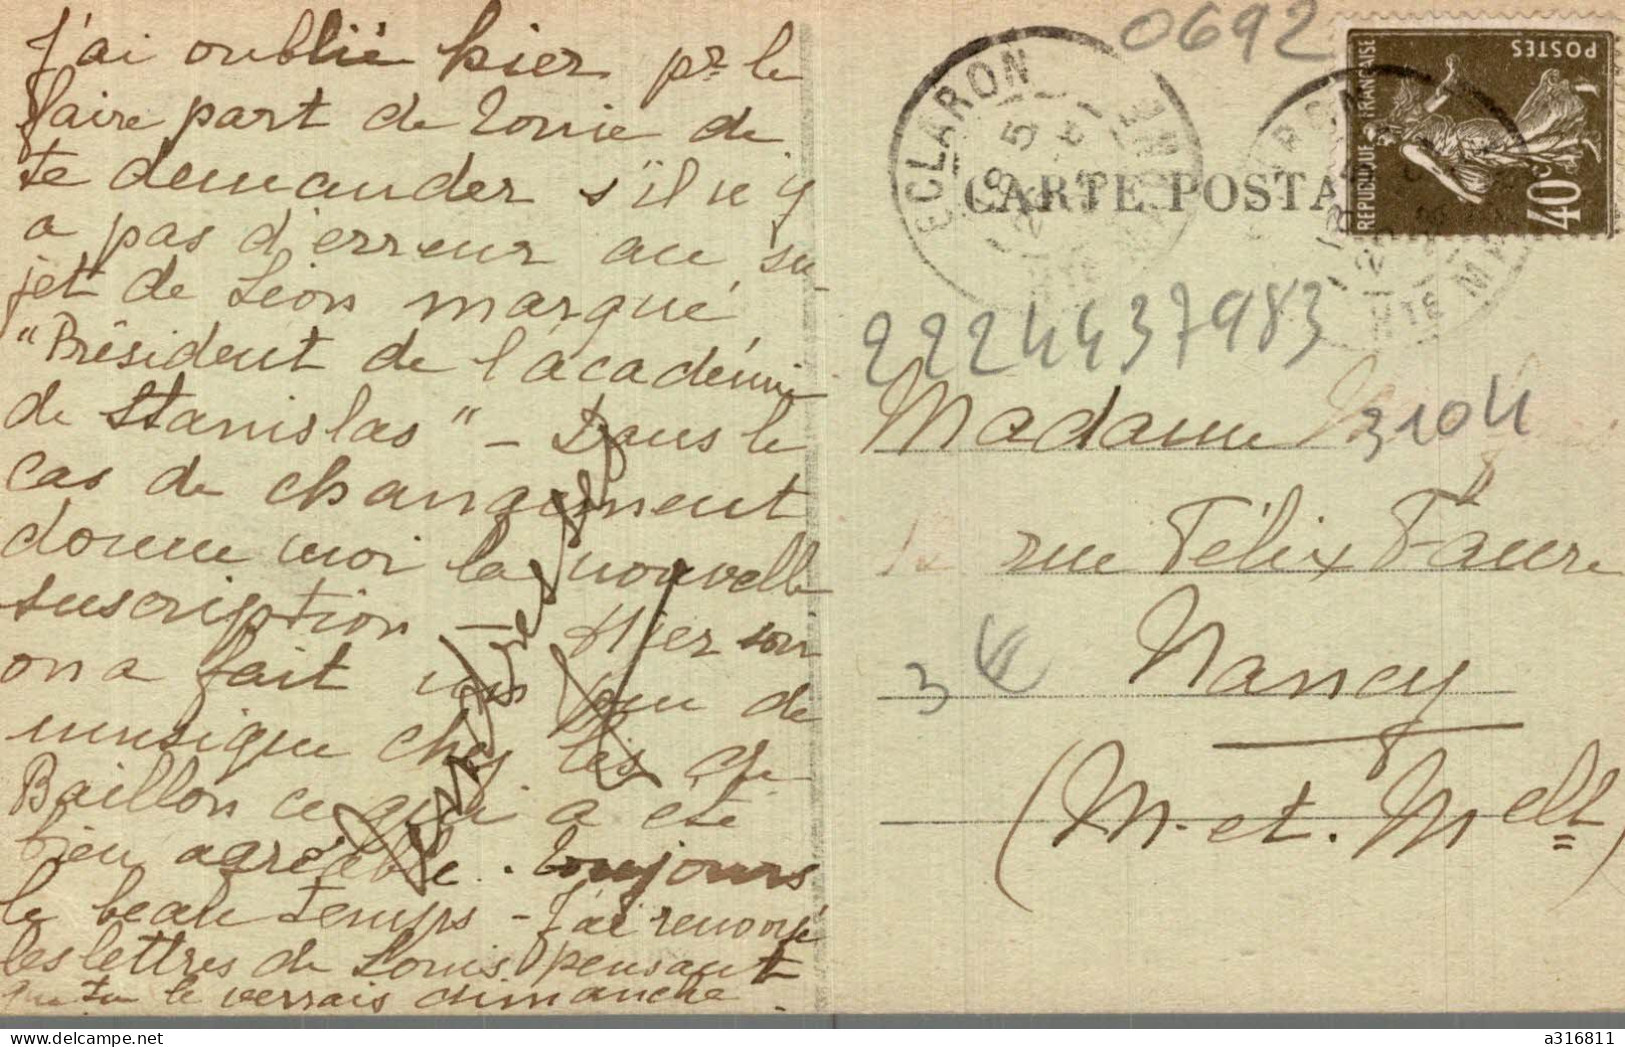 J'ai oublié hier pr le
faire part de Tonie de
te demander s'il n'y
a pas d'erreur au su-
jet de Léon marqué
"Président de l'académie
de Stanislas" - Dans le
cas de changement
donne moi la nouvelle
suscription - Hier soir
on a fait un peu de
musique chez les de
Baillon ce qui a été
bien agréable. Toujours
le beau temps - J'ai renvoyé
les lettres de Louis pensant
que tu le verrais dimanche
0692
ECLARON
HTE MARNE
8 5
CARTE POSTA
REPUBLIQUE FRANÇAISE
POSTES
40c
2224437983
Madame
3104
12 rue Félix Faure
Nancy
3 €
(M. et. Melle)
a316811